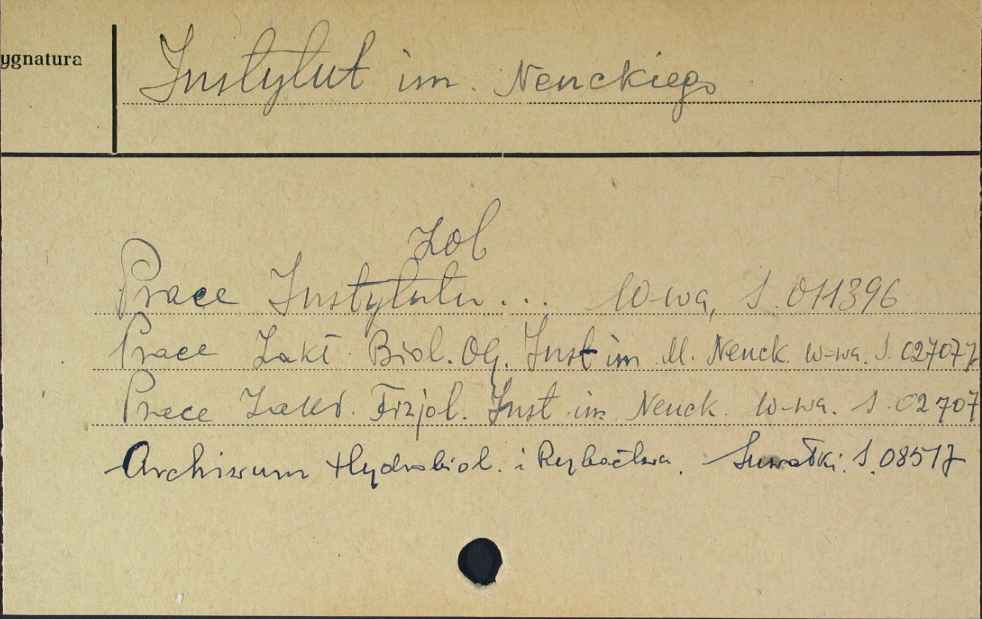 ygnatura
Instytut im. Nenckiego
Zob
Prace Instytutu... W-wa, S. 011396
Prace Zakł. Biol. Og. Inst im M. Nenck. W-wa. S. 027077
Prace Zakł. Fizjol. Inst im Nenck. W-wa. S. 02707
Archiwum Hydrobiol. i Rybactwa. Suwałki. S. 08517